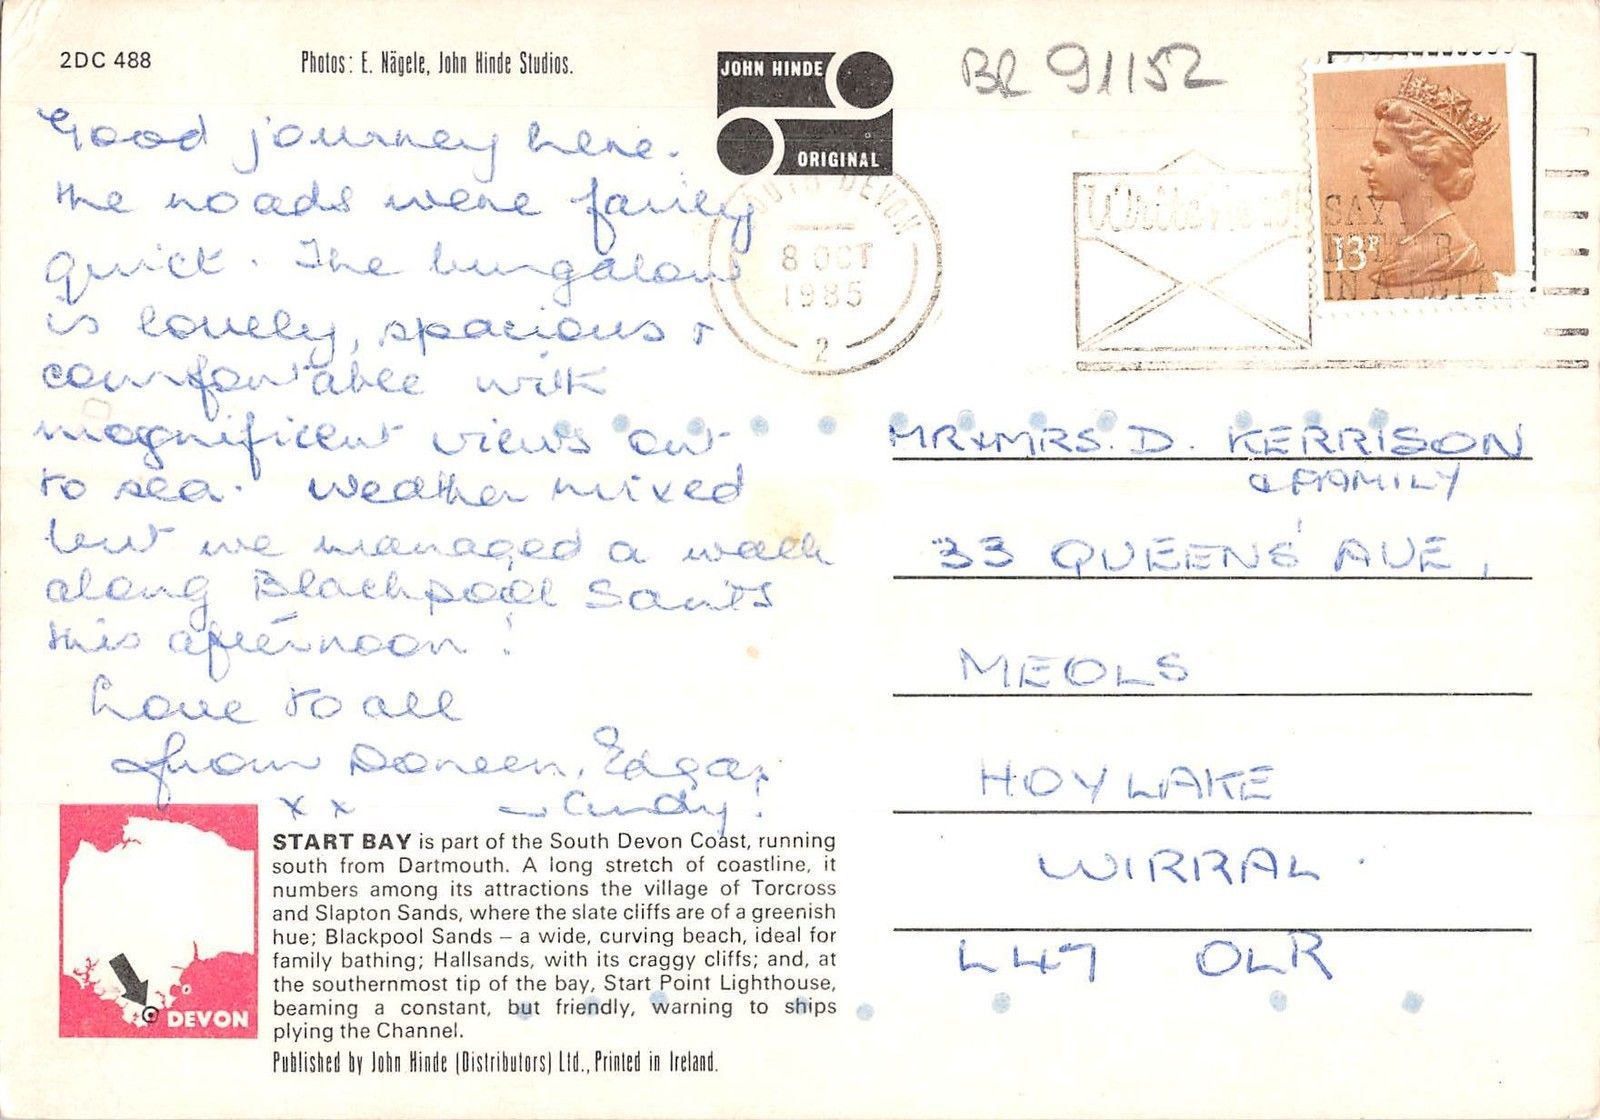 2DC 488
Photos: E. Nägele, John Hinde Studios.
JOHN HINDE
ORIGINAL
BR 91152
Good journey here.
The roads were fairly
quiet. The bungalow
is lovely, spacious +
comfortable with
magnificent views out
to sea. Weather mixed
but we managed a walk
along Blackpool Sands
this afternoon!
Love to all
from Doreen, Edgar
x x
SOUTH DEVON
8 OCT
1985
2
SAY IT
BETTER
IN A LETTER
13P
MR & MRS. D. KERRISON
& FAMILY
33 QUEENS' AVE,
MEOLS
HOYLAKE
WIRRAL.
L47 OLR
START BAY is part of the South Devon Coast, running
south from Dartmouth. A long stretch of coastline, it
numbers among its attractions the village of Torcross
and Slapton Sands, where the slate cliffs are of a greenish
hue; Blackpool Sands – a wide, curving beach, ideal for
family bathing; Hallsands, with its craggy cliffs; and, at
the southernmost tip of the bay, Start Point Lighthouse,
beaming a constant, but friendly, warning to ships
plying the Channel.
DEVON
Published by John Hinde (Distributors) Ltd., Printed in Ireland.